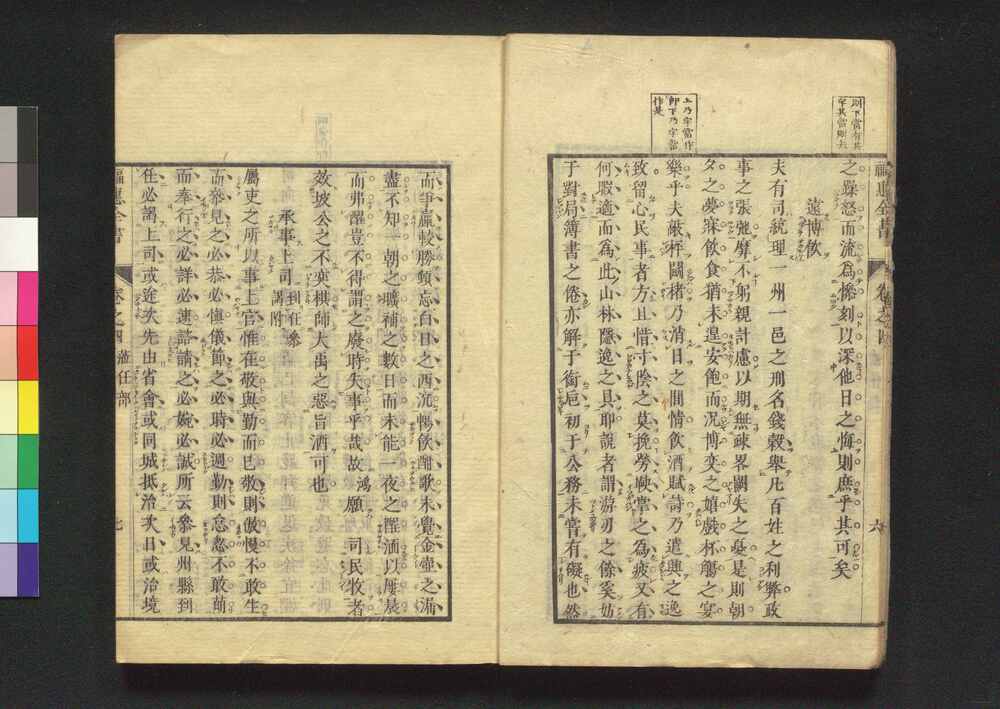 之躁怒而流為慘刻以深他日之悔則庶乎其可矣
遠博飲
夫有司統理一州一邑之刑名錢穀舉凡百姓之利弊政
事之張弛靡不躬親計慮以期無疎畧闕失之虞是則朝
夕之夢寐飲食猶未遑安飽而況博奕之嬉戲杯觴之宴
樂乎夫蔽枰鬬楮乃消日之閒情飲酒賦詩乃遣興之逸
致留心民事者方且惜寸陰之莫挽勞鞅掌之為疲又有
何暇適而為此山林隱逸之具耶說者謂游刃之餘奚妨
于對局簿書之倦亦解于銜巵初于公務未嘗有礙也然
上乃字當作
即下乃字當
作是
福惠全書
卷之四
六
而爭贏較勝頻忘白日之西沉暢飲酣歌未覺金壺之漏
盡不知一朝之曠補之數日而未能一夜之酲湎以屢晨
而弗醒豈不得謂之廢時失事乎哉故鴻願司民牧者
效坡公之不奕棋師大禹之惡旨酒可也
承事上司 到任參謁附
屬吏之所以事上官惟在敬與勤而已敬則傲慢不敢生
而參見之必恭必慎儀節之必時必週勤則怠忽不敢萌
而奉行之必詳必速諮請之必婉必誠所云參見州縣到
任必謁上司或途次先由省會或同城抵治次日或治境
福惠全書
卷之四
蒞任部
七